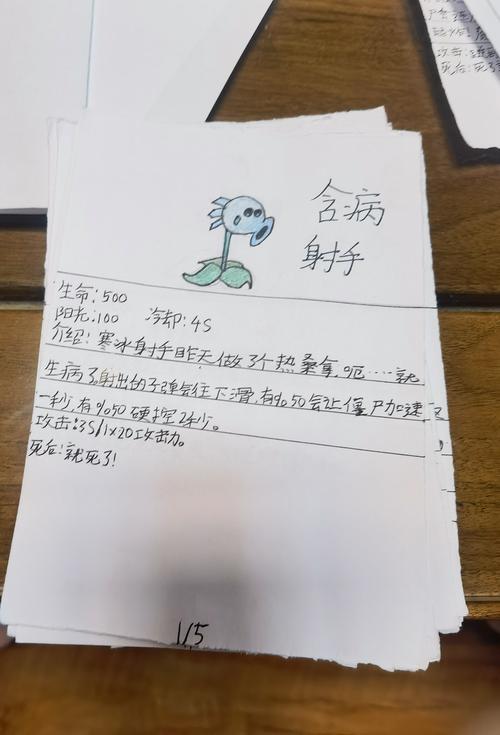 含病
射手
生命:500
阳光:100 冷却:4S
介绍:寒冰射手昨天做了个热桑拿,呃……就
生病了,射出的子弹会往下滑,有%50会让僵尸加速
一秒,有%50硬控2秒。
攻击:3S/1×20攻击力。
死后:就死了!
115
攻击:
死后:死了